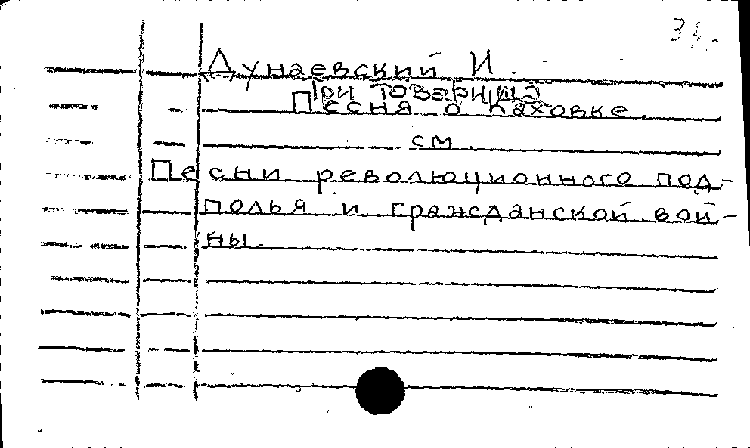 34.
Дунаевский И.
Три товарища
Песня о Каховке.
см.
Песни революционного под-
полья и гражданской вой-
ны.